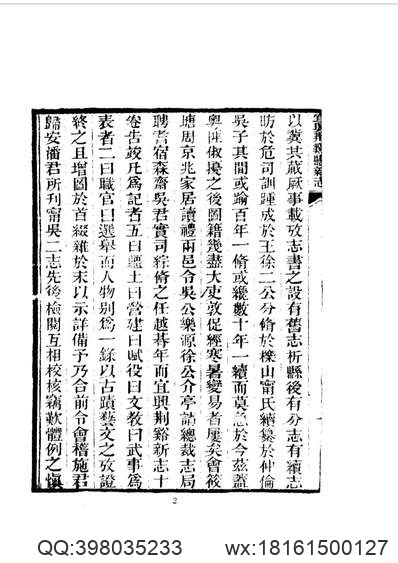 宜興荊谿縣新志
以冀其蕆厥事載攷志書之設有舊志析縣後有分志有續志
昉於危司訓踵成於王徐二公分脩於櫟山甯氏續纂於仲倫
吳子其間或踰百年一脩或纔數十年一續而莫急於今茲蓋
粵匪俶擾之後圖籍幾盡大吏敦促經寒暑變易者屢矣會筱
塘周京兆家居讀禮兩邑令吳公樂源徐公介亭請總裁志局
聘耆宿森齋吳君實司綜脩之任越朞年而宜興荊谿新志十
卷告竣凡為記者五曰疆土曰營建曰賦役曰文教曰武事為
表者二曰職官曰選舉而人物別為一錄以古蹟藝文之攷證
終之且增圖於首綴雜於末以示詳備予乃合前令會稽施君
歸安潘君所刊甯吳二志先後檢閱互相校核竊歎體例之愼
2
QQ:398035233 wx:18161500127